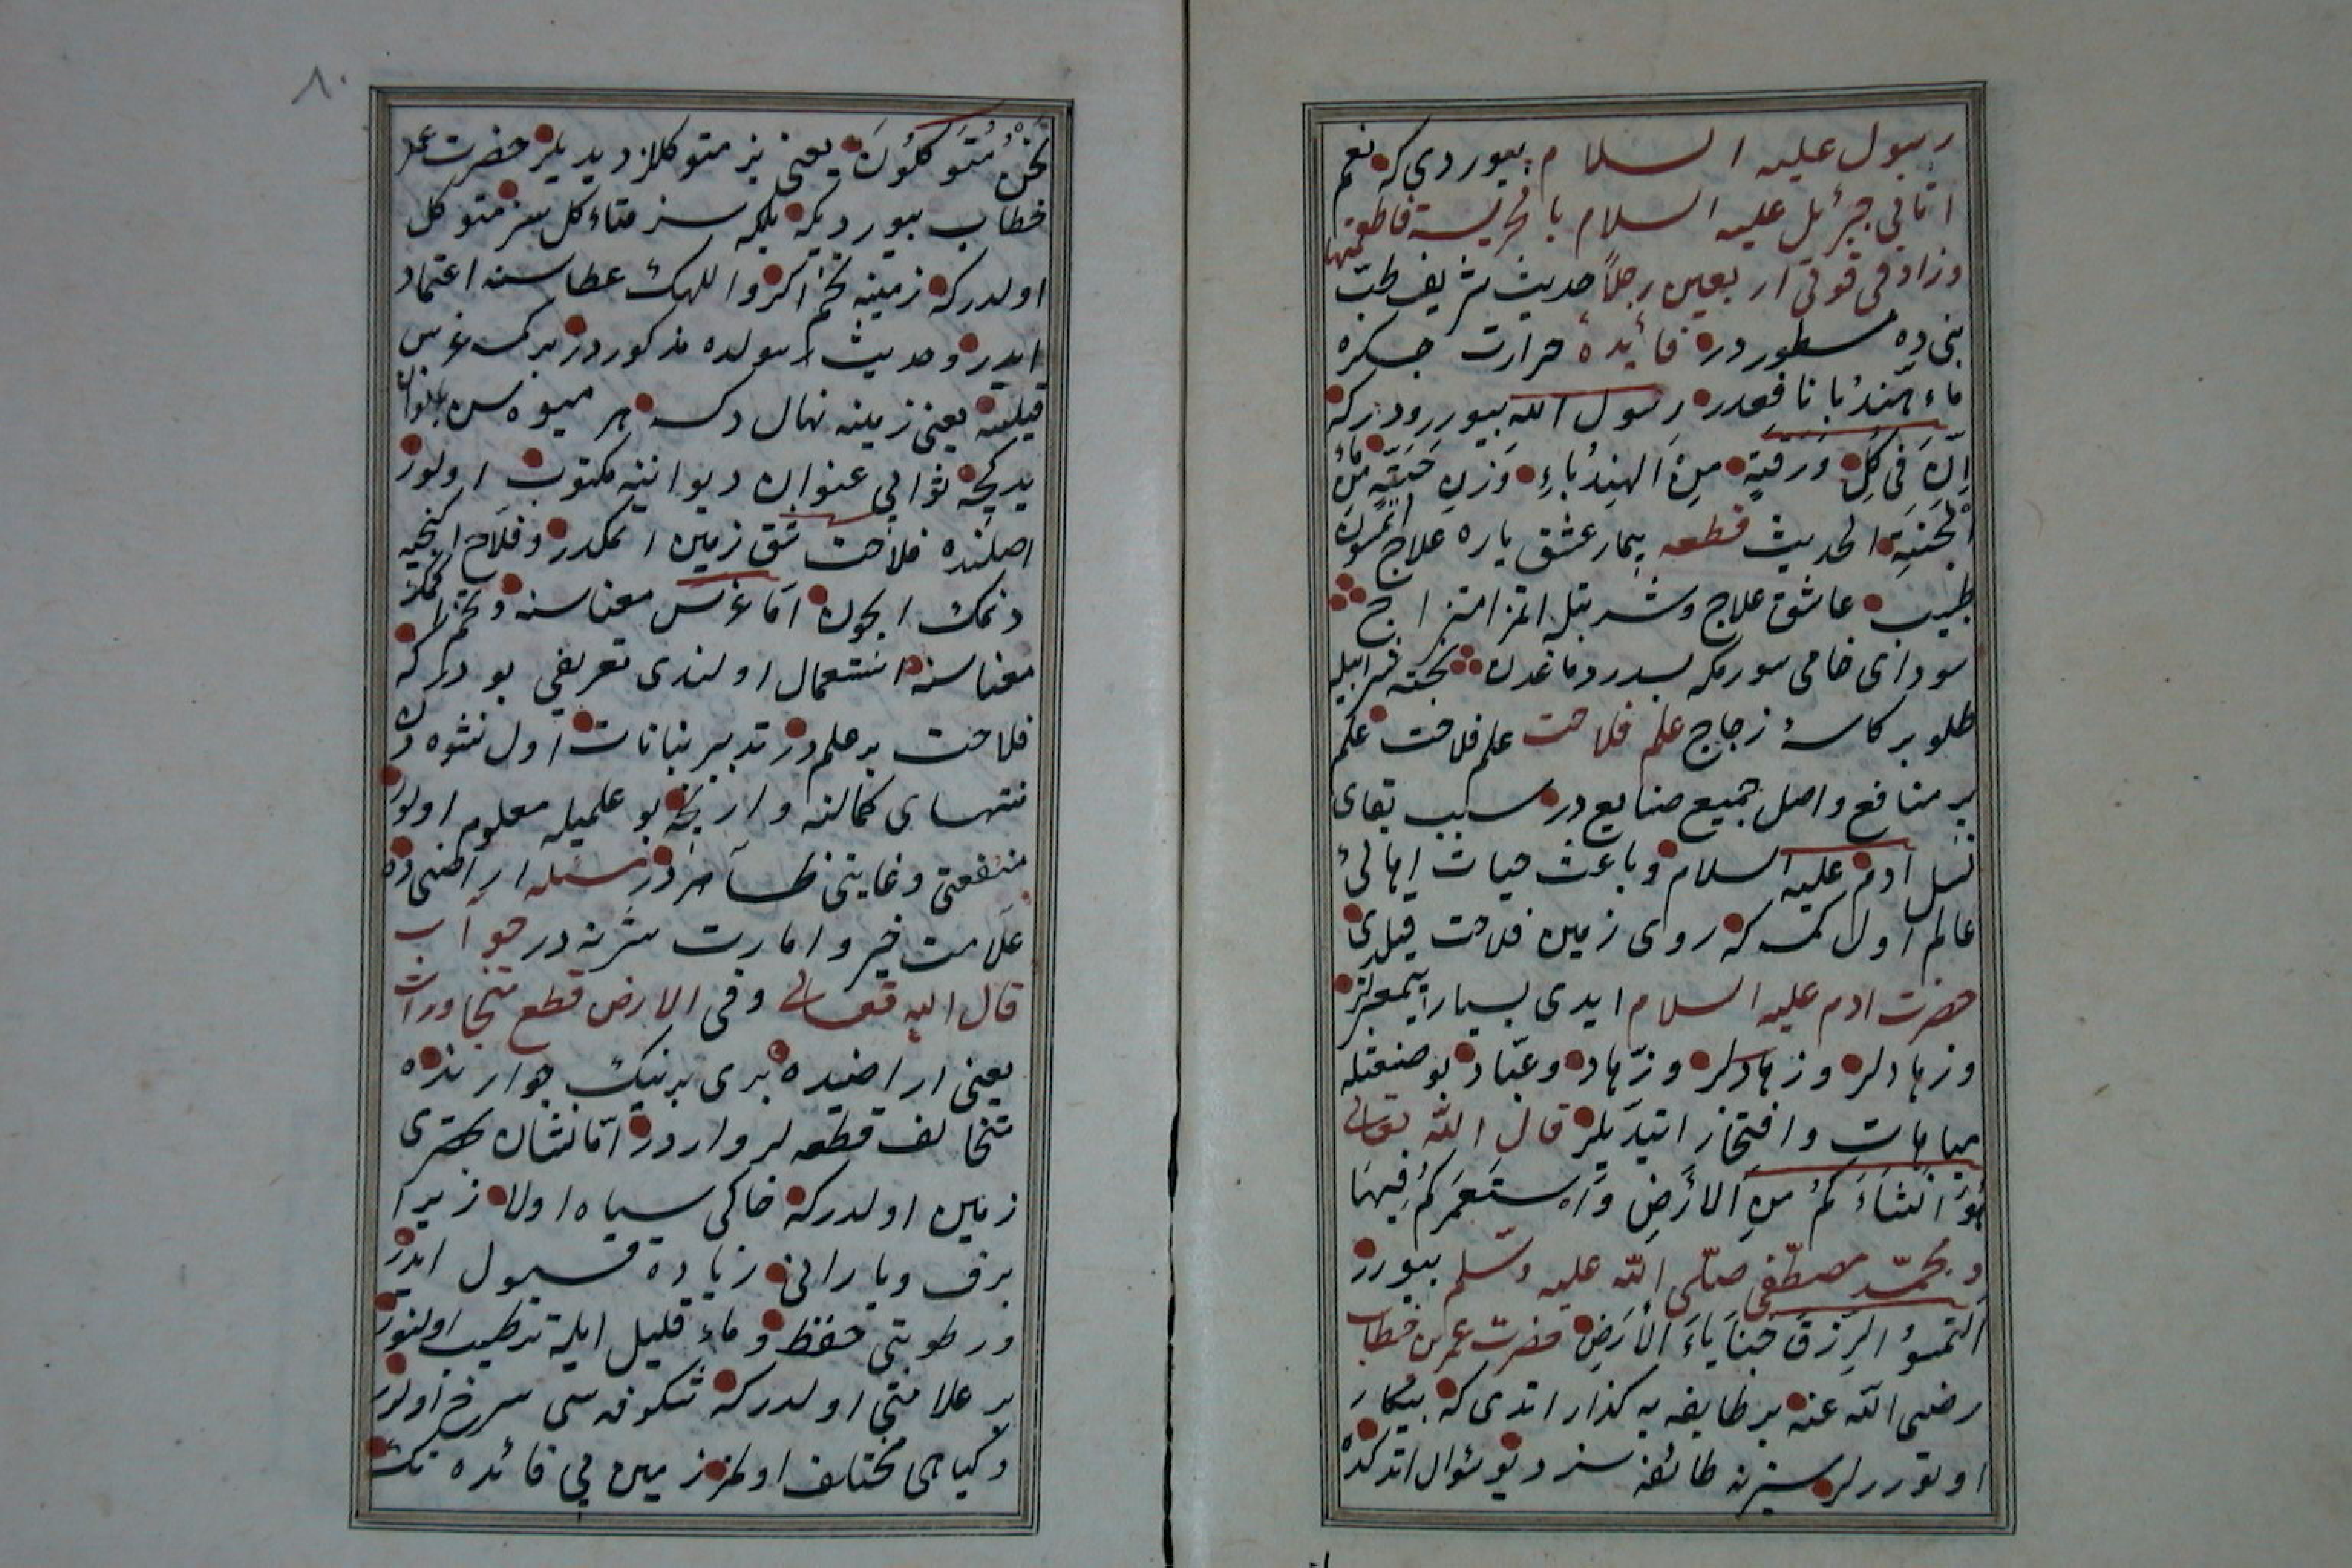 رسول عليه السلام بيوردي كه نعم
اتاني جبرئل عليه السلام بالهريسة فاطعمنيها
وزاد في قوتي اربعين رجلاً حديث شريف طبّ
نبي ده مسطور در فائده حرارت جكره
ماء هندُبا نافعدر رسول الله بيوررودركه
اِنَّ في كلّ ورقةٍ مِنَ الهندُباءِ وَزن حَبّةٍ مِن ماء
الجَنّةِ الحديث قطعه بيمار عشق ياره علاج ايلمسون
طبيب عاشق علاج وشربتله اتمز امتزاج
سوداى خامى سورمكه بسدر دماغدن پخته شرابيله
طلو بر كاسهٔ زجاج علم فلاحت علم فلاحت علم
پر منافع واصل جميع صنايع در سبب بقاى
نسل آدم عليه السلام وباعث حيات اهالئ
عالم اول كمسه كه روى زمين فلاحت قيلدى
حضرت ادم عليه السلام ايدى بسيار پيغمبرلر
وزهادلر وزهادلر وزهّاد وعبّاد بو صنعتله
مباهات وافتخار ايتديلر قال الله تعالى
هُوَ اَنشاَءَكُم مِنَ الاَرضِ وَاستَعمَركُم فيهَا
ومحمّد مصطفى صلّى الله عليه وسلم بيورر
اَلتمسوُ الرِزقَ خبَاياءَ الاَرضِ حضرت عمر بن خطاب
رضى الله عنه بر طايفه يه كذار اتدى كه بيكار
اوتوررلر سيز نه طائفه سز ديو سوال اتدكده
نَحْنُ مُتَوَكلوُنَ يعني بز متوكلز ديديلر حضرت عمر
خطاب بيورديكه بلكه سز متاءكل سز متوكل
اولدركه زمينه تخم اكر واللهك عطاسنه اعتماد
ايدر وحديث رسولده مذكوردر بر كمسه غرس
قيلسه يعني زمينه نهال دكسه هر ميوه سن
يدكجه ثوابي عنوان ديواننه مكتوب اولور
اصلنده فلاحت شق زمين اتمكدر وفلاح اكنجيه
دنمك ايجون امّا غرس معناسنه وتخم اكمك
معناسنه استعمال اولندى تعريفي بودركه
فلاحت بر علمدر تدبير نباتات اول نشوه دن
منتهاى كمالنه وارنجه بو علميله معلوم اولور
منفعتي وغايتي ظاهردر مسئله اراضى ده
علامت خير وامارت شرّ نه در جواب
قال الله تعالى وفي الارض قطع متجاورات
يعني اراضيده برى برينك جوارنده
متخالف قطعه لر واردر امّا نشان بهترى
زمين اولدركه خاكى سياه اولا زيرا
برف وبارانى زياده قبول ايدر
ورطوبتى حفظ وماء قليل ايله ترطيب اولنور
بر علامتى اولدركه شكوفه سى سرخ اولور
وكياهى مختلف اولمز زمين بي فائده نك
٨٠